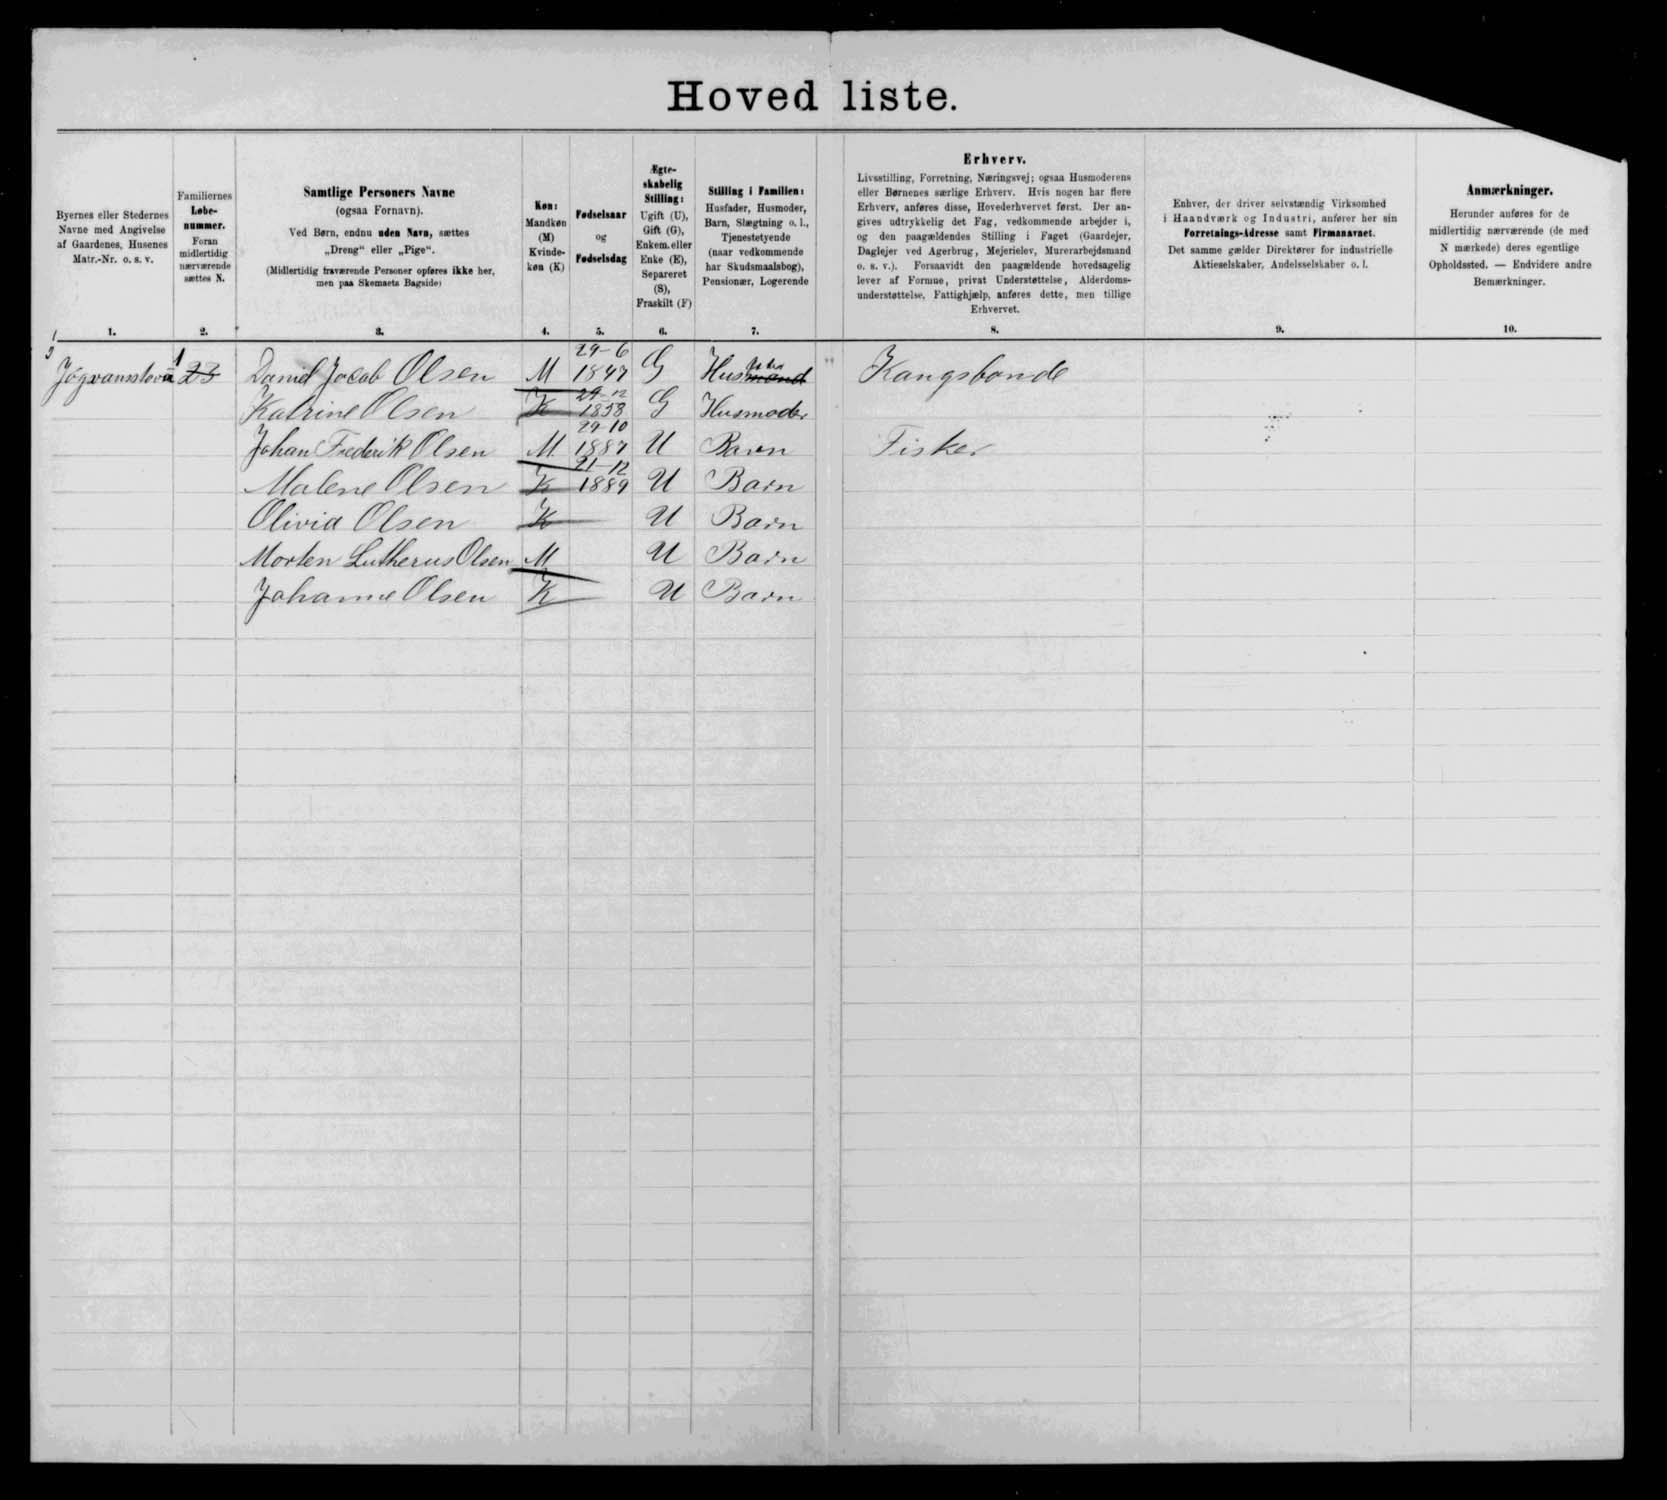 Hoved liste.
Byernes eller Stedernes
Navne med Angivelse
af Gaardenes, Husenes
Matr.-Nr. o. s. v.
Familiernes
Løbe-
nummer.
Foran
midlertidig
nærværende
sættes N.
Samtlige Personers Navne
(ogsaa Fornavn).
Ved Børn, endnu uden Navn, sættes
„Dreng“ eller „Pige“.
(Midlertidig fraværende Personer opføres ikke her,
men paa Skemaets Bagside)
Køn:
Mandkøn
(M)
Kvinde-
køn (K)
Fødselsaar
og
Fødselsdag
Ægte-
skabelig
Stilling:
Ugift (U),
Gift (G),
Enkem. eller
Enke (E),
Separeret
(S),
Fraskilt (F)
Stilling i Familien:
Husfader, Husmoder,
Barn, Slægtning o. l.,
Tjenestetyende
(naar vedkommende
har Skudsmaalsbog),
Pensionær, Logerende
Erhverv.
Livsstilling, Forretning, Næringsvej; ogsaa Husmoderens
eller Børnenes særlige Erhverv. Hvis nogen har flere
Erhverv, anføres disse, Hovederhvervet først. Der an-
gives udtrykkelig det Fag, vedkommende arbejder i,
og den paagældendes Stilling i Faget (Gaardejer,
Daglejer ved Agerbrug, Mejerielev, Murerarbejdsmand
o. s. v.). Forsaavidt den paagældende hovedsagelig
lever af Formue, privat Understøttelse, Alderdoms-
understøttelse, Fattighjælp, anføres dette, men tillige
Erhvervet.
Enhver, der driver selvstændig Virksomhed
i Haandværk og Industri, anfører her sin
Forretnings-Adresse samt Firmanavnet.
Det samme gælder Direktører for industrielle
Aktieselskaber, Andelsselskaber o. l.
Anmærkninger.
Herunder anføres for de
midlertidig nærværende (de med
N mærkede) deres egentlige
Opholdssted. — Endvidere andre
Bemærkninger.
1. 2. 3. 4. 5. 6. 7. 8. 9. 10.
1 29-6
23 Daniel Jacob Olsen M 1847 G Husmand Kongsbonde
29-12
Katrine Olsen K 1858 G Husmoder
29-10
Johan Frederik Olsen M 1887 U Barn Fisker
21-12
Malene Olsen K 1889 U Barn
Olivia Olsen K U Barn
Morten Lutherus Olsen M U Barn
Johanne Olsen K U Barn